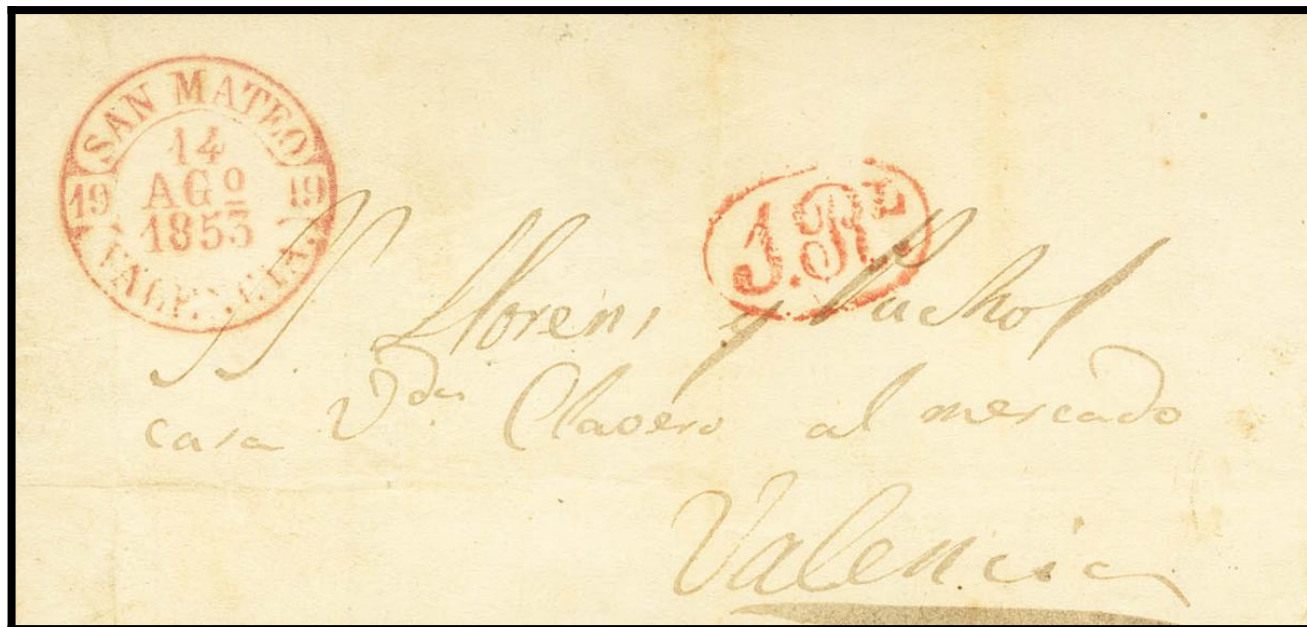 SAN MATEO
14
AGº
1853
19 19
VALENCIA.
1.Rˡ
SS. Llorens y
casa Vda. Clavero al mercado
Valencia